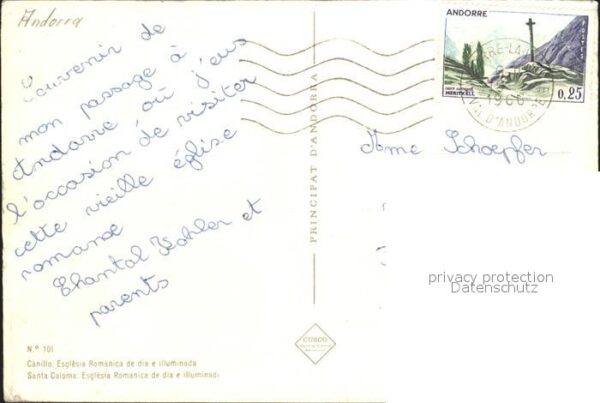 Andorra
Souvenir de
mon passage à
Andorre où j'eus
l'occasion de visiter
cette vieille église
romane
Chantal Kohler et
parents
PRINCIPAT D'ANDORRA
ANDORRE
POSTES
MERITXELL
0,25
1966
Mme Schoepfer
privacy protection
Datenschutz
CUSCO
N.º 101
Canillo: Església Romanica de dia e illuminada
Santa Coloma: Església Romanica de dia e illuminad